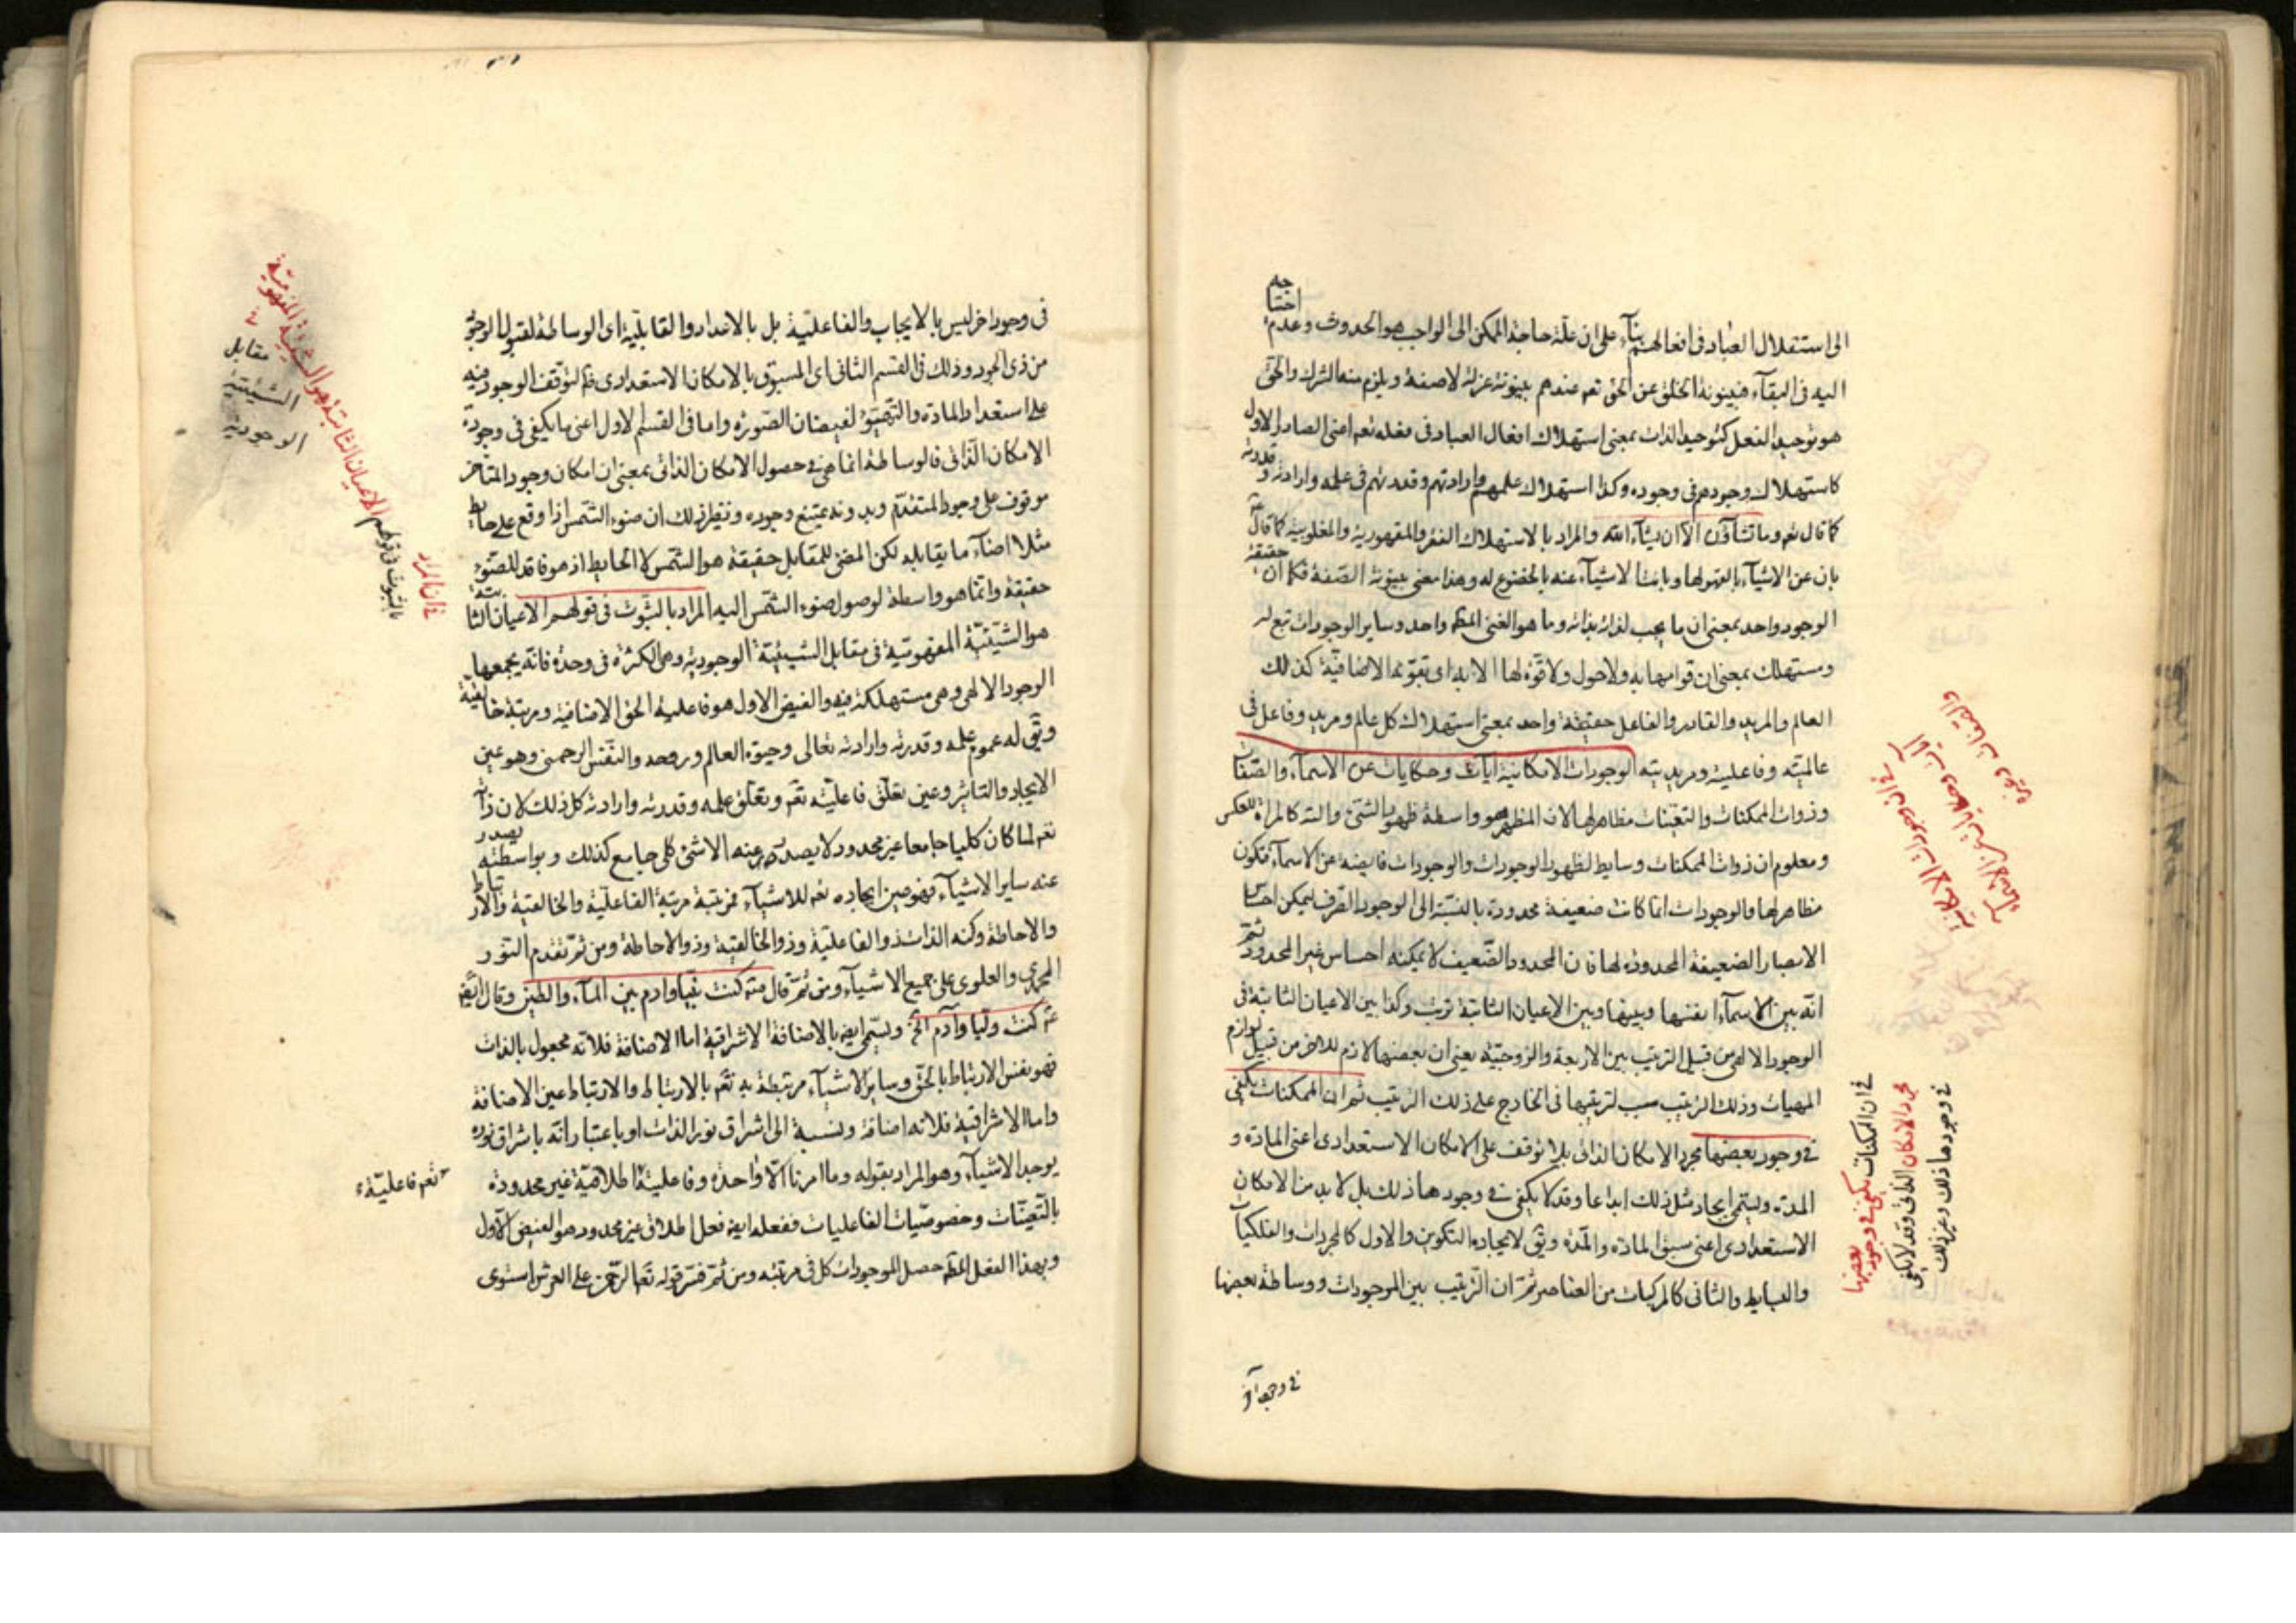 الى استقلال العباد فى افعالهم بناء على ان علة حاجة الممكن الى الواجب هو الحدوث وعدم احتياجه
اليه فى البقاء فبينونة الخلق عن الحق تعم عندهم بينونة عزلة لاصفة ويلزم منه الشرك والحق
هو توحيد الفعل كتوحيد الذات بمعنى استهلاك افعال العباد فى فعله تعم اعنى الصادر الاول
كاستهلاك وجودهم فى وجوده وكذا استهلاك علمهم وارادتهم وقدرتهم فى علمه وارادته وقدرته
كما قال تعم وما تشاؤن الا ان يشاء الله والمراد بالاستهلاك الفقر والمقهورية والمغلوبية كما قال
بان عن الاشياء بالقهر لها وبانت الاشياء عنه بالخضوع له وهذا معنى بينونة الصفة فكما ان حقيقة
الوجود واحد بمعنى ان ما يجب لذاته بذاته وما هو الغنى المطم واحد وساير الوجودات تبع له
ومستهلك بمعنى ان قوامها به ولا حول ولا قوة لها الا به اى بقيوميته الاضافية كذلك
العالم والمريد والقادر والفاعل حقيقة واحد بمعنى استهلاك كل عالم ومريد وفاعل فى
عالميته وفاعليته ومريديته الوجودات الامكانية ايات وحكايات عن الاسماء والصفات
وذوات الممكنات والتعينات مظاهر لها لان المظهر هو واسطة ظهور الشئ والته كالمراة للعكس
ومعلوم ان ذوات الممكنات وسايط لظهور الوجودات والوجودات فايضة عن الاسماء فتكون
مظاهر لها والوجودات انما كانت ضعيفة محدودة بالنسبة الى الوجود الصرف ليمكن احساس
الابصار الضعيفة المحدودة لها فان المحدود الضعيف لا يمكنه احساس غير المحدود ثم
انه بين الاسماء انفسها وبينها وبين الاعيان الثابتة ترتب وكذا بين الاعيان الثابتة فى
الوجود الالهى من قبيل الترتب بين الاربعة والزوجية يعنى ان بعضها لازم للاخر من قبيل لوازم
المهيات وذلك الترتيب سبب لترتيبها فى الخارج على ذلك الترتيب ثم ان الممكنات يكفى
فى وجود بعضها مجرد الامكان الذاتى بلا توقف على الامكان الاستعدادى اعنى المادة و
المدة ويسمى ايجاد مثل ذلك ابداعا وقد لا يكفى فى وجودها ذلك بل لا بد من الامكان
الاستعدادى اعنى سبق المادة والمدة ويق لايجاده التكوين والاول كالمجردات والفلكيات
والبسايط والثانى كالمركبات من العناصر ثم ان الترتيب بين الموجودات ووساطة بعضها
فى وجود آخر
فى ان وجودات الامكانية
ايات وحكايات عن الاسماء
والصفات وغيره
فى ان الممكنات يكفى فى وجود بعضها
مجرد الامكان الذاتى وقد لا يكفى
فى وجودها ذلك وغير ذلك
فى وجود اخر ليس بالايجاب والفاعلية بل بالاعداد والقابلية اى الوساطة لقبول الوجود
من ذى الجود وذلك فى القسم الثانى اى المسبوق بالامكان الاستعدادى فلم لتوقف الوجود فيه
على استعداد المادة والتهيؤ لفيضان الصورة واما فى القسم الاول اعنى ما يكفى فى وجوده
الامكان الذاتى فالوساطة انما هى فى حصول الامكان الذاتى بمعنى ان امكان وجود المتاخر
موقوف على وجود المتقدم وبدونه يمتنع وجوده ونظير ذلك ان ضوء الشمس اذا وقع على حايط
مثلا اضاء ما يقابله لكن المضئ للمقابل حقيقة هو الشمس لا الحايط اذ هو فاقد للضوء
حقيقة وانما هو واسطة لوصول ضوء الشمس اليه المراد بالثبوت فى قولهم الاعيان الثابتة
هو الشيئية المفهومية فى مقابل الشيئية الوجودية وهى الكثرة فى وحدة فانه يجمعها
الوجود الالهى وهى مستهلكة فيه والفيض الاول هو فاعلية الحق الاضافية ومرتبة خالقيته
ويق له عموم علمه وقدرته وارادته تعالى وحيوة العالم وروحه والنفس الرحمنى وهو عين
الايجاد والتاثير وعين تعلق فاعليته تعم وتعلق علمه وقدرته وارادته كل ذلك لان ذاته
تعم لما كان كليا جامعا غير محدود لا يصدر عنه الا شئ كلى جامع كذلك وبواسطته يصدر
عنه ساير الاشياء فهو عين ايجاده تعم للاشياء فمرتبته مرتبة الفاعلية والخالقية والارتباط
والاحاطة وكنه الذات ذو الفاعلية وذو الخالقية وذو الاحاطة ومن ثم تقدم النور
المحمدى والعلوى على جميع الاشياء ومن ثم قال ص كنت نبيا وادم بين الماء والطين وقال ايض
ع كنت وليا وآدم الخ ويسمى ايض بالاضافة الاشراقية اما الاضافة فلانه مجعول بالذات
فهو نفس الارتباط بالحق وساير الاشياء مرتبطة به تعم بالارتباط والارتباط عين الاضافة
واما الاشراقية فلانه اضافة ونسبة الى اشراق نور الذات او باعتبار انه باشراق نوره
يوجد الاشياء وهو المراد بقوله وما امرنا الا واحدة وفاعلية اطلاقية غير محدودة
بالتعينات وخصوصيات الفاعليات ففعله ايض فعل اطلاقى غير محدود هو الفيض الاول
وبهذا الفعل المطم حصل الموجودات كل فى مرتبته ومن ثم فسر قوله تعم الرحمن على العرش استوى
فى ان المراد
بالثبوت فى قولهم الاعيان الثابتة هو الشيئية المفهومية فى
مقابل
الشيئية
الوجودية
تعم فاعلية